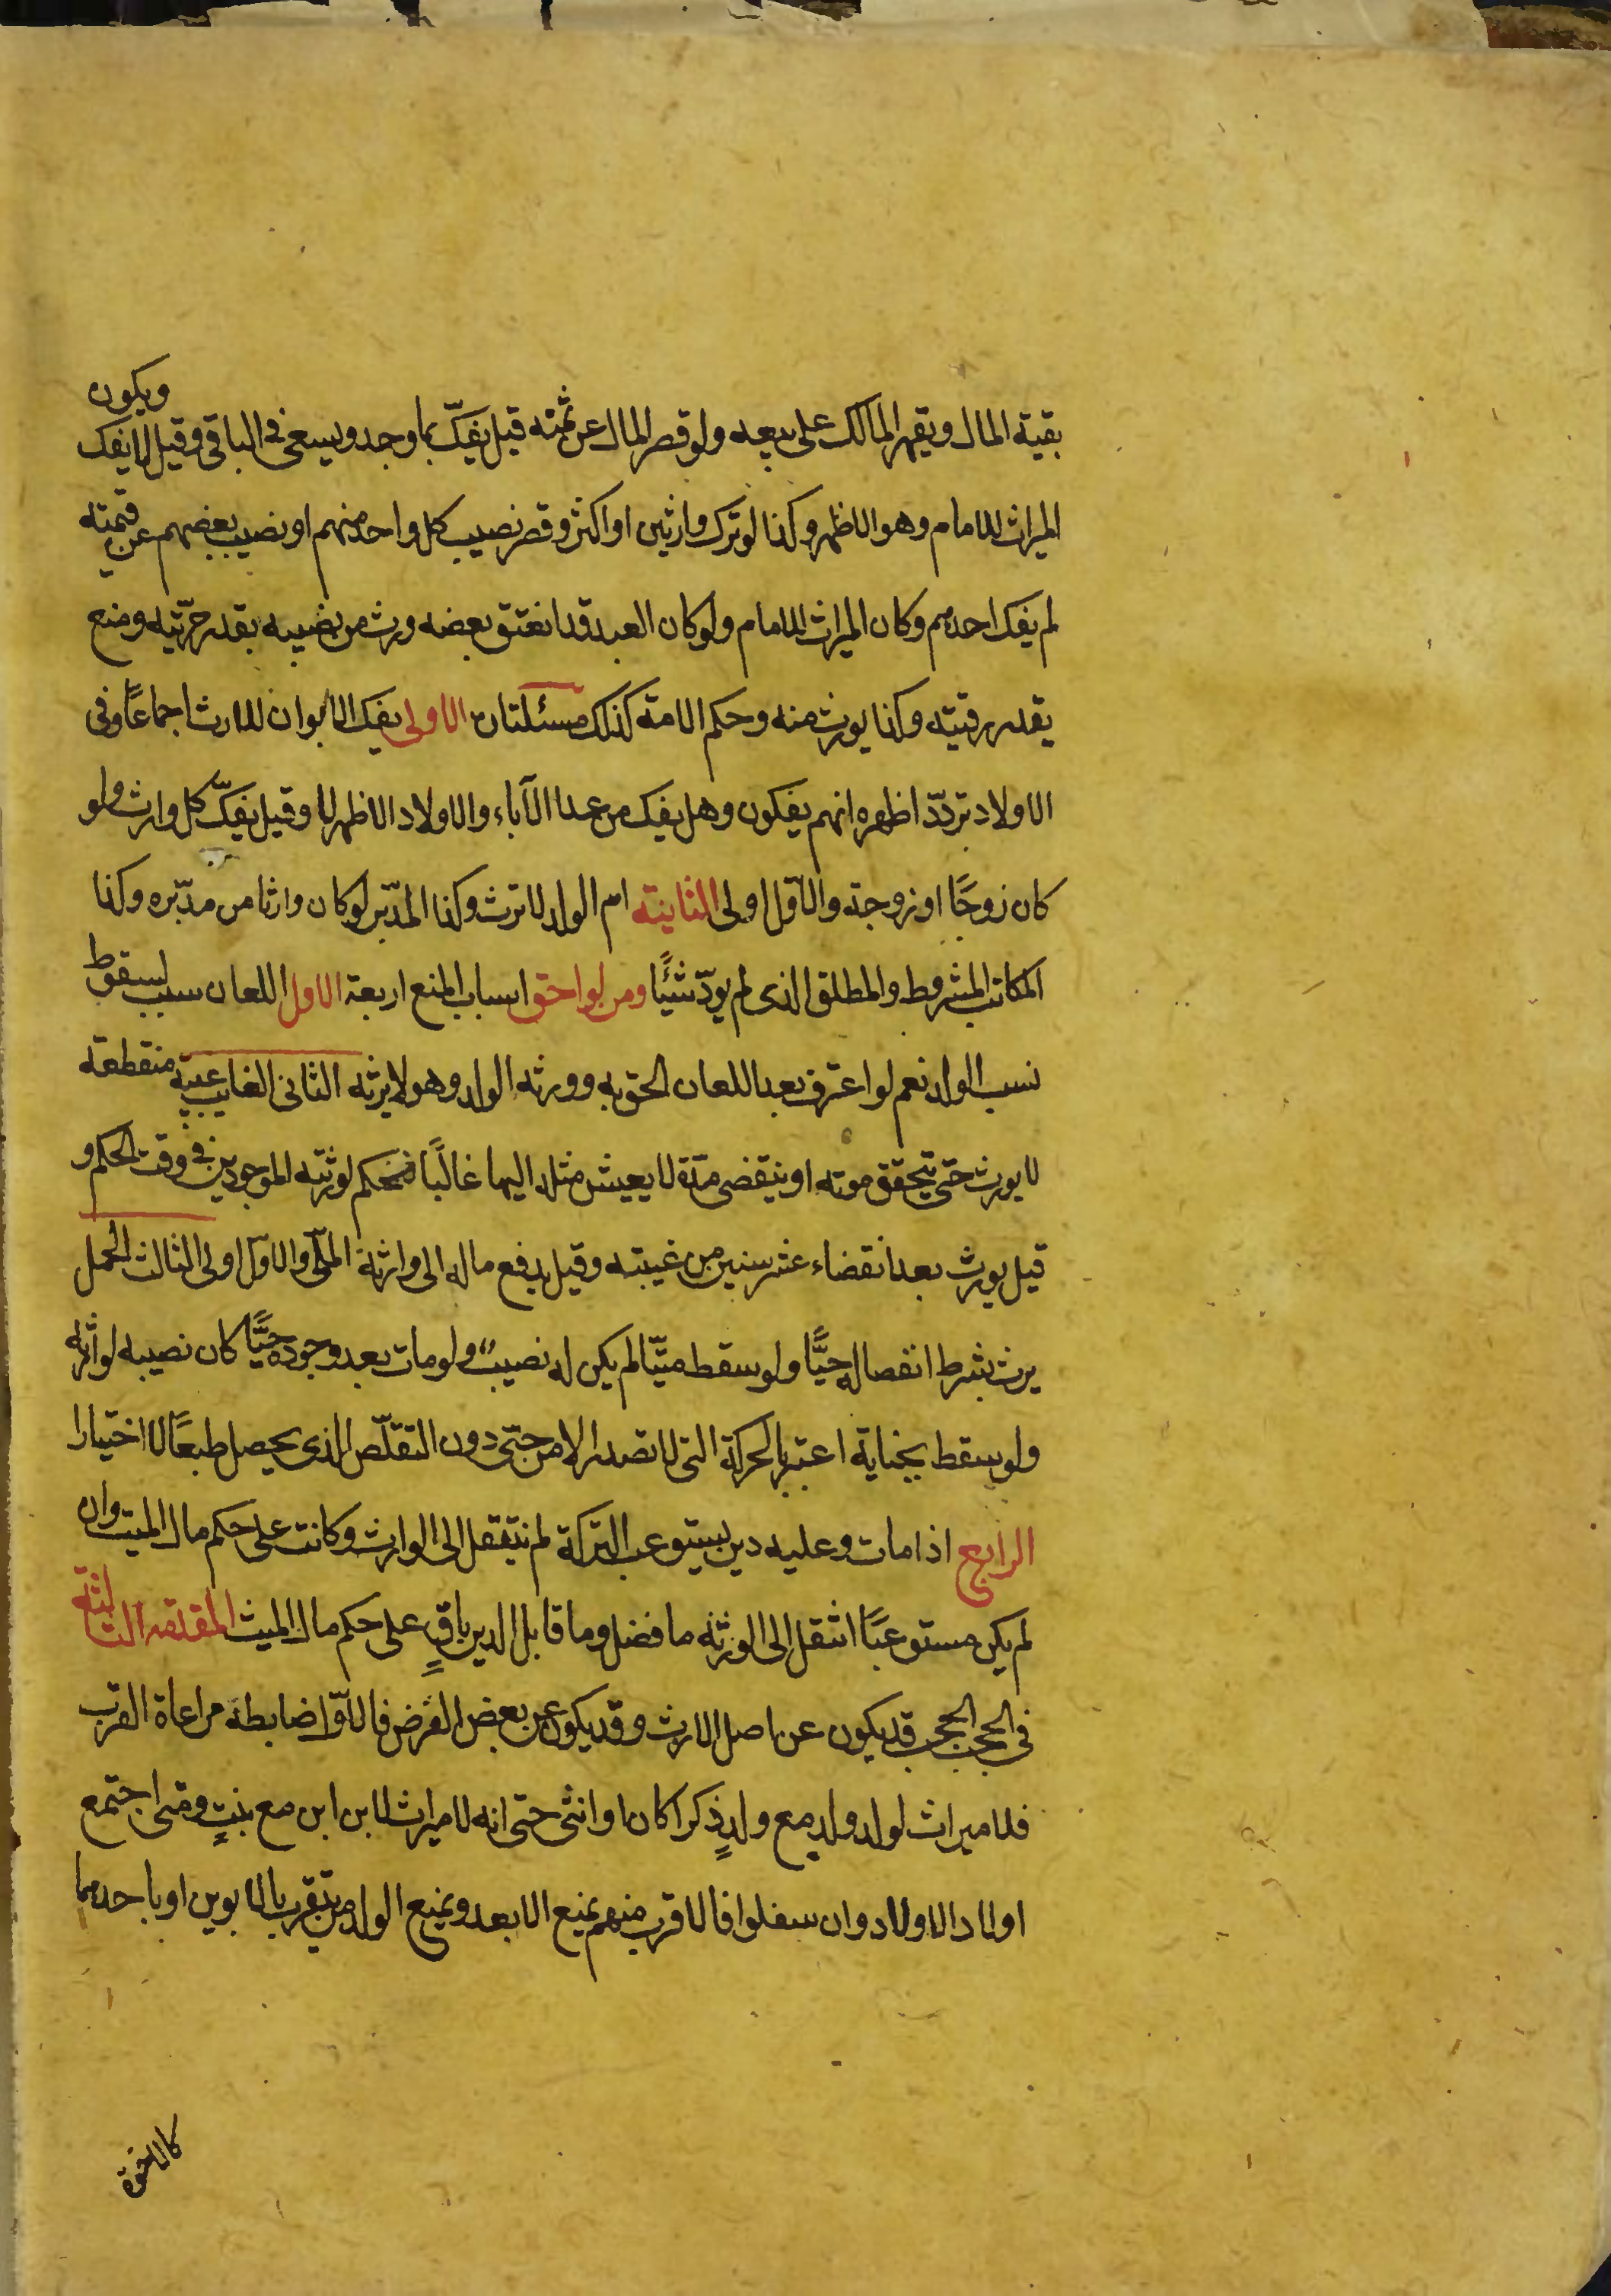 بقية المال ويقهر المالك على بيعه ولو قصر المال عن ثمنه قيل يفكّ بما وجد ويسعى في الباقي وقيل لا يفك ويكون
الميراث للامام وهو الاظهر وكذا لو ترك وارثين او اكثر وقصر نصيب كل واحد منهم او نصيب بعضهم عن قيمته
لم يفك احدهم وكان الميراث للامام ولو كان العبد قد انعتق بعضه ورث من نصيبه بقدر حرّيته ومنع
بقدر رقيته وكذا يورث منه وحكم الامة كذلك مسئلتان الاولى يفك الابوان للارث اجماعًا وفي
الاولاد تردّد اظهره انهم يفكون وهل يفك من عدا الآباء والاولاد الاظهر لا وقيل يفكّ كل وارث ولو
كان زوجًا او زوجة والاوّل اولى الثانية ام الولد لا ترث وكذا المدّبر لو كان وارثا من مدّبره وكذا
المكاتب المشروط والمطلق الذى لم يودّ شئيًا ومن لواحق اسباب المنع اربعة الاول اللعان سبب لسقوط
نسب الولد نعم لو اعترف بعد اللعان الحق به وورثه الولد وهو لا يرثه الثانى الغايب غيبة منقطعة
لا يورث حتى يتحقق موته او ينقضى مدّة لا يعيش مثله اليها غالبًا فيحكم لورثته الموجودين في وقت الحكم و
قيل يورث بعد انقضاء عشر سنين من غيبته وقيل يدفع ماله الى وارثه الملّى والاوّل اولى الثالث الحمل
يرث بشرط انفصاله حيًّا ولو سقط ميّتا لم يكن له نصيبٌ ولو مات بعد وجوده حيًّا كان نصيبه لوارثه
ولو سقط بجناية اعتبر بالحركة التى لا تصدر الا من حتّى دون التقلّص الذى يحصل طبعًا لا اختيارا
الرابع اذا مات وعليه دين يستوعب التركة لم تنتقل الى الوارث وكانت على حكم مال الميت وان
لم يكن مستوعبًا انتقل الى الورثه ما فضل وما قابل الدين باقٍ على حكم مال الميث المقدّمه الثالثة
في الحجب الحجب قد يكون عن اصل الارث وقد يكون عن بعض الفرض فالاوّل ضابطه مراعاة القرب
فلا ميراث لولد ولد مع ولدٍ ذكرا كان او انثى حتى انه لا ميراث لابن ابن مع بنتٍ ومتى اجتمع
اولاد الاولاد وان سفلوا فالاقرب منهم يمنع الابعد ويمنع الولد من يتقرب بالابوين او باحدهما
كالاخوة